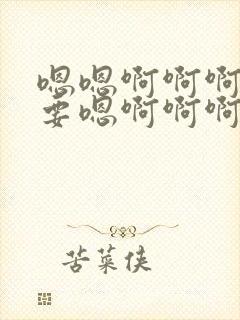 嗯嗯啊啊啊
要嗯啊啊啊
苦菜侠